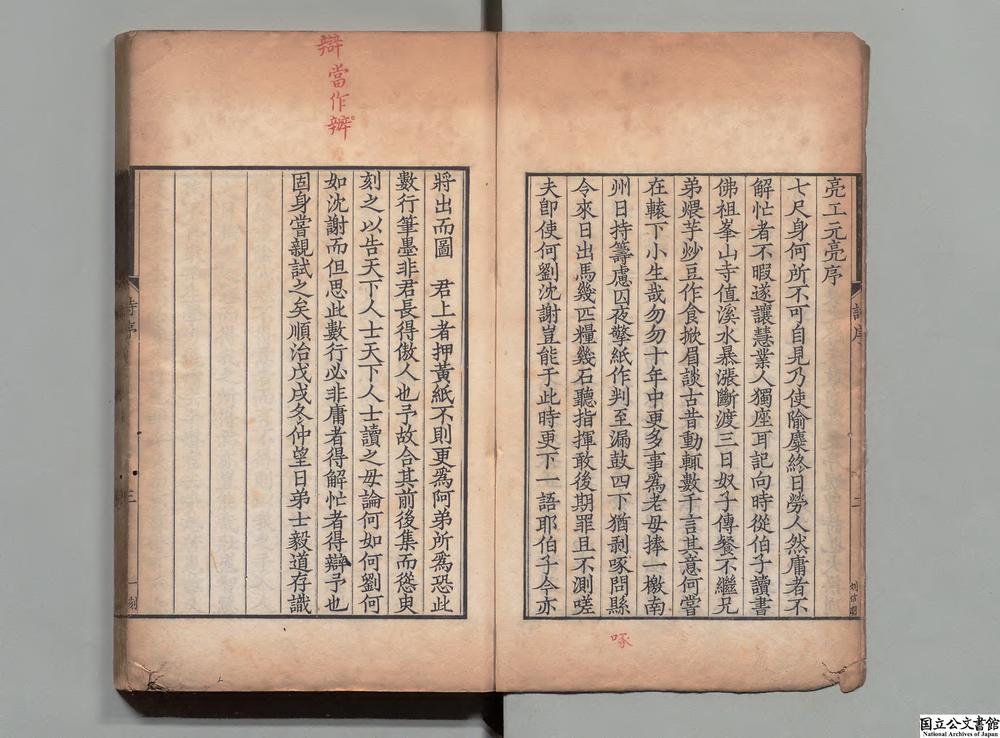 亮工元亮序
七尺身何所不可自見乃使隃麋終日勞人然庸者不
解忙者不暇遂讓慧業人獨座耳記向時從伯子讀書
佛祖峯山寺值溪水暴漲斷渡三日奴子傳餐不繼兄
弟煨芋炒豆作食掀眉談古昔動輒數千言其意何嘗
在轅下小生哉勿勿十年中更多事爲老母捧一檄南
州日持籌慮囚夜擎紙作判至漏鼓四下猶剥啄問縣
令來日出馬幾匹糧幾石聽指揮敢後期罪且不測嗟
夫卽使何劉沈謝豈能于此時更下一語耶伯子今亦
詩序
二
將出而圖　君上者押黃紙不則更爲阿弟所爲恐此
數行筆墨非君長得傲人也予故合其前後集而慫臾
刻之以告天下人士天下人士讀之毋論何如何劉何
如沈謝而但思此數行必非庸者得解忙者得辯予也
固身嘗親試之矣順治戊戌冬仲望日弟士毅道存識
詩序
三
辯當作辨
啄
国立公文書館
National Archives of Japan